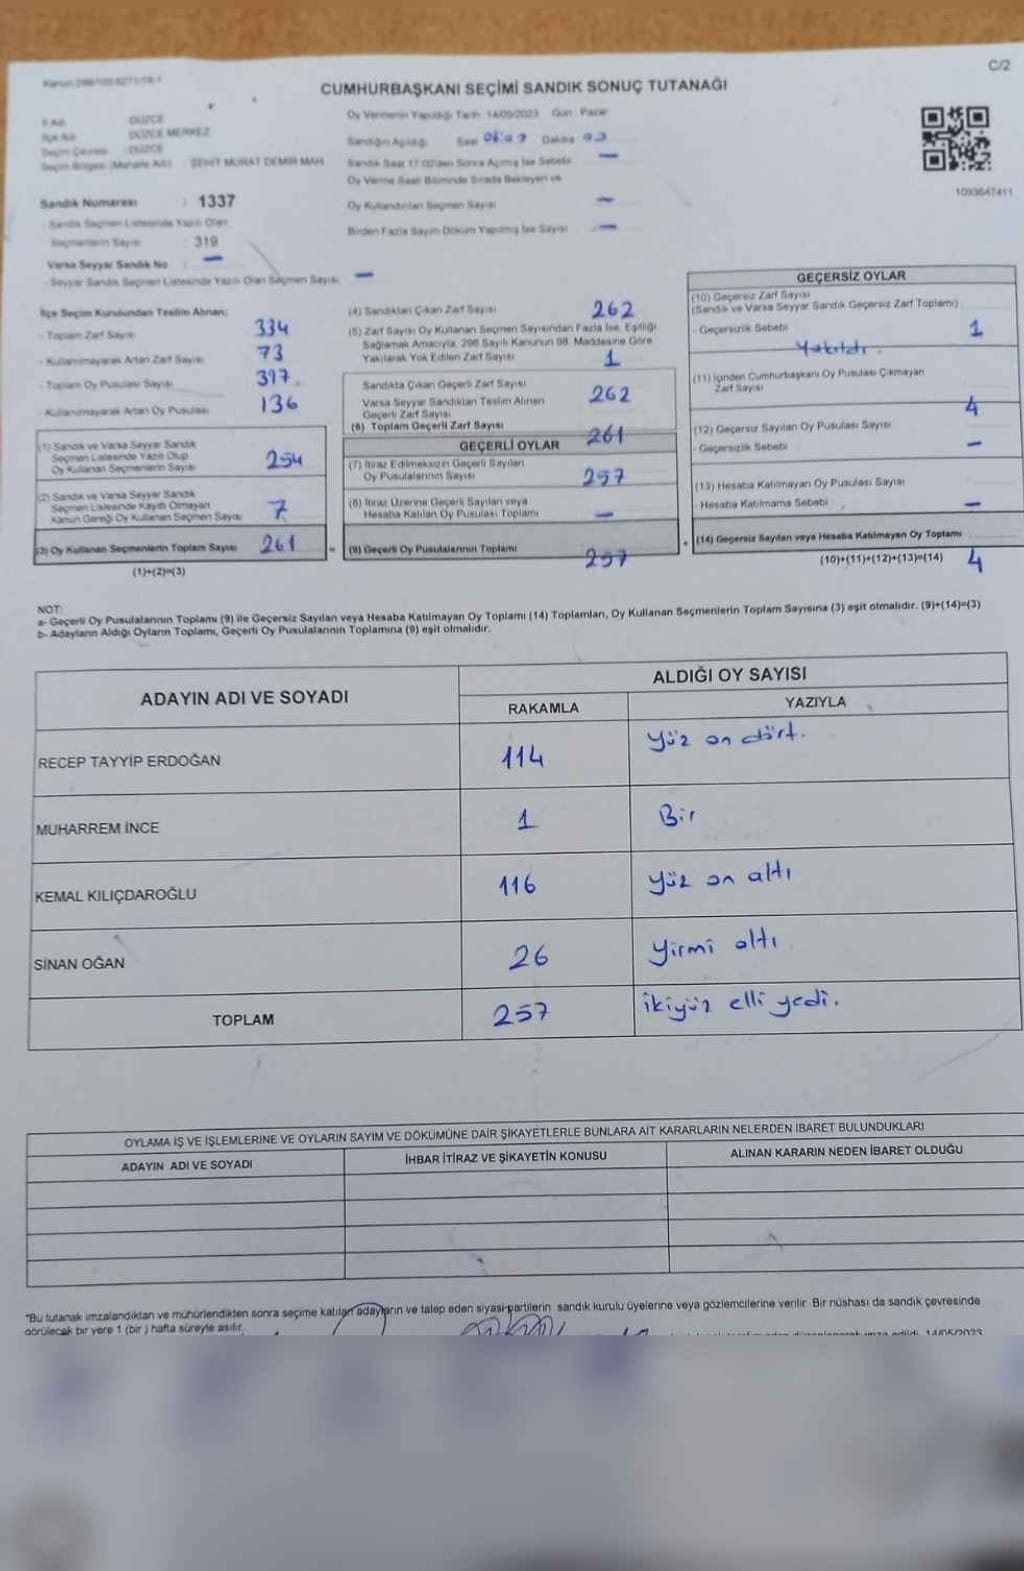 C/2
CUMHURBAŞKANI SEÇİMİ SANDIK SONUÇ TUTANAĞI
İl Adı : DÜZCE
İlçe Adı : DÜZCE MERKEZ
Seçim Çevresi : DÜZCE
Seçim Bölgesi (Mahalle Adı) : ŞEHİT MURAT DEMİR MAH.
Sandık Numarası : 1337
- Sandık Seçmen Listesinde Yazılı Olan
Seçmenlerin Sayısı : 319
Varsa Seyyar Sandık No : –
- Seyyar Sandık Seçmen Listesinde Yazılı Olan Seçmen Sayısı : –
Oy Vermenin Yapıldığı Tarih 14/05/2023 Gün : Pazar
Sandığın Açıldığı Saat Dakika
Sandık Saat 17:00'den Sonra Açılmış İse Sebebi –
Oy Verme Saati Bitiminde Sırada Bekleyen ve
Oy Kullandırılan Seçmen Sayısı –
Birden Fazla Sayım Döküm Yapılmış İse Sayısı –
1093647411
İlçe Seçim Kurulundan Teslim Alınan;
- Toplam Zarf Sayısı 334
- Kullanılmayarak Artan Zarf Sayısı 73
- Toplam Oy Pusulası Sayısı 397
- Kullanılmayarak Artan Oy Pusulası 136
(1) Sandık ve Varsa Seyyar Sandık
Seçmen Listesinde Yazılı Olup
Oy Kullanan Seçmenlerin Sayısı 254
(2) Sandık ve Varsa Seyyar Sandık
Seçmen Listesinde Kayıtlı Olmayan
Kanun Gereği Oy Kullanan Seçmen Sayısı 7
(3) Oy Kullanan Seçmenlerin Toplam Sayısı 261
(1)+(2)=(3)
(4) Sandıktan Çıkan Zarf Sayısı 262
(5) Zarf Sayısı Oy Kullanan Seçmen Sayısından Fazla İse, Eşitliği
Sağlamak Amacıyla, 298 Sayılı Kanunun 98. Maddesine Göre
Yakılarak Yok Edilen Zarf Sayısı 1
Sandıkta Çıkan Geçerli Zarf Sayısı 262
Varsa Seyyar Sandıktan Teslim Alınan
Geçerli Zarf Sayısı
(6) Toplam Geçerli Zarf Sayısı 261
GEÇERLİ OYLAR
(7) İtiraz Edilmeksizin Geçerli Sayılan
Oy Pusulalarının Sayısı 257
(8) İtiraz Üzerine Geçerli Sayılan veya
Hesaba Katılan Oy Pusulası Toplamı –
(9) Geçerli Oy Pusulalarının Toplamı 257
GEÇERSİZ OYLAR
(10) Geçersiz Zarf Sayısı
(Sandık ve Varsa Seyyar Sandık Geçersiz Zarf Toplamı)
- Geçersizlik Sebebi 1
Yakıldı.
(11) İçinden Cumhurbaşkanı Oy Pusulası Çıkmayan
Zarf Sayısı 4
(12) Geçersiz Sayılan Oy Pusulası Sayısı
- Geçersizlik Sebebi –
(13) Hesaba Katılmayan Oy Pusulası Sayısı
- Hesaba Katılmama Sebebi –
(14) Geçersiz Sayılan veya Hesaba Katılmayan Oy Toplamı
(10)+(11)+(12)+(13)=(14) 4
NOT:
a- Geçerli Oy Pusulalarının Toplamı (9) ile Geçersiz Sayılan veya Hesaba Katılmayan Oy Toplamı (14) Toplamları, Oy Kullanan Seçmenlerin Toplam Sayısına (3) eşit olmalıdır. (9)+(14)=(3)
b- Adayların Aldığı Oyların Toplamı, Geçerli Oy Pusulalarının Toplamına (9) eşit olmalıdır.
ADAYIN ADI VE SOYADI
ALDIĞI OY SAYISI
RAKAMLA YAZIYLA
RECEP TAYYİP ERDOĞAN 114 Yüz on dört.
MUHARREM İNCE 1 Bir
KEMAL KILIÇDAROĞLU 116 Yüz on altı
SİNAN OĞAN 26 Yirmi altı
TOPLAM 257 İkiyüz elli yedi.
OYLAMA İŞ VE İŞLEMLERİNE VE OYLARIN SAYIM VE DÖKÜMÜNE DAİR ŞİKAYETLERLE BUNLARA AİT KARARLARIN NELERDEN İBARET BULUNDUKLARI
ADAYIN ADI VE SOYADI İHBAR İTİRAZ VE ŞİKAYETİN KONUSU ALINAN KARARIN NEDEN İBARET OLDUĞU
*Bu tutanak imzalandıktan ve mühürlendikten sonra seçime katılan adayların ve talep eden siyasi partilerin sandık kurulu üyelerine veya gözlemcilerine verilir. Bir nüshası da sandık çevresinde
görülecek bir yere 1 (bir) hafta süreyle asılır.
14/05/2023